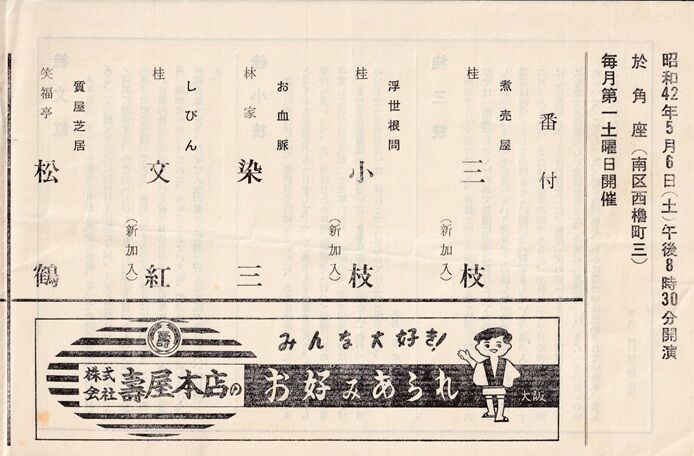 昭和42年5月6日(土)午後8時30分開演
於角座(南区西櫓町三)
毎月第一土曜日開催
番付
煮売屋
桂三枝(新加入)
浮世根問
桂小枝(新加入)
お血脈
林家染三
しびん
桂文紅(新加入)
質屋芝居
笑福亭松鶴
みんな大好き!
壽
株式会社壽屋本店の
お好みあられ
大阪